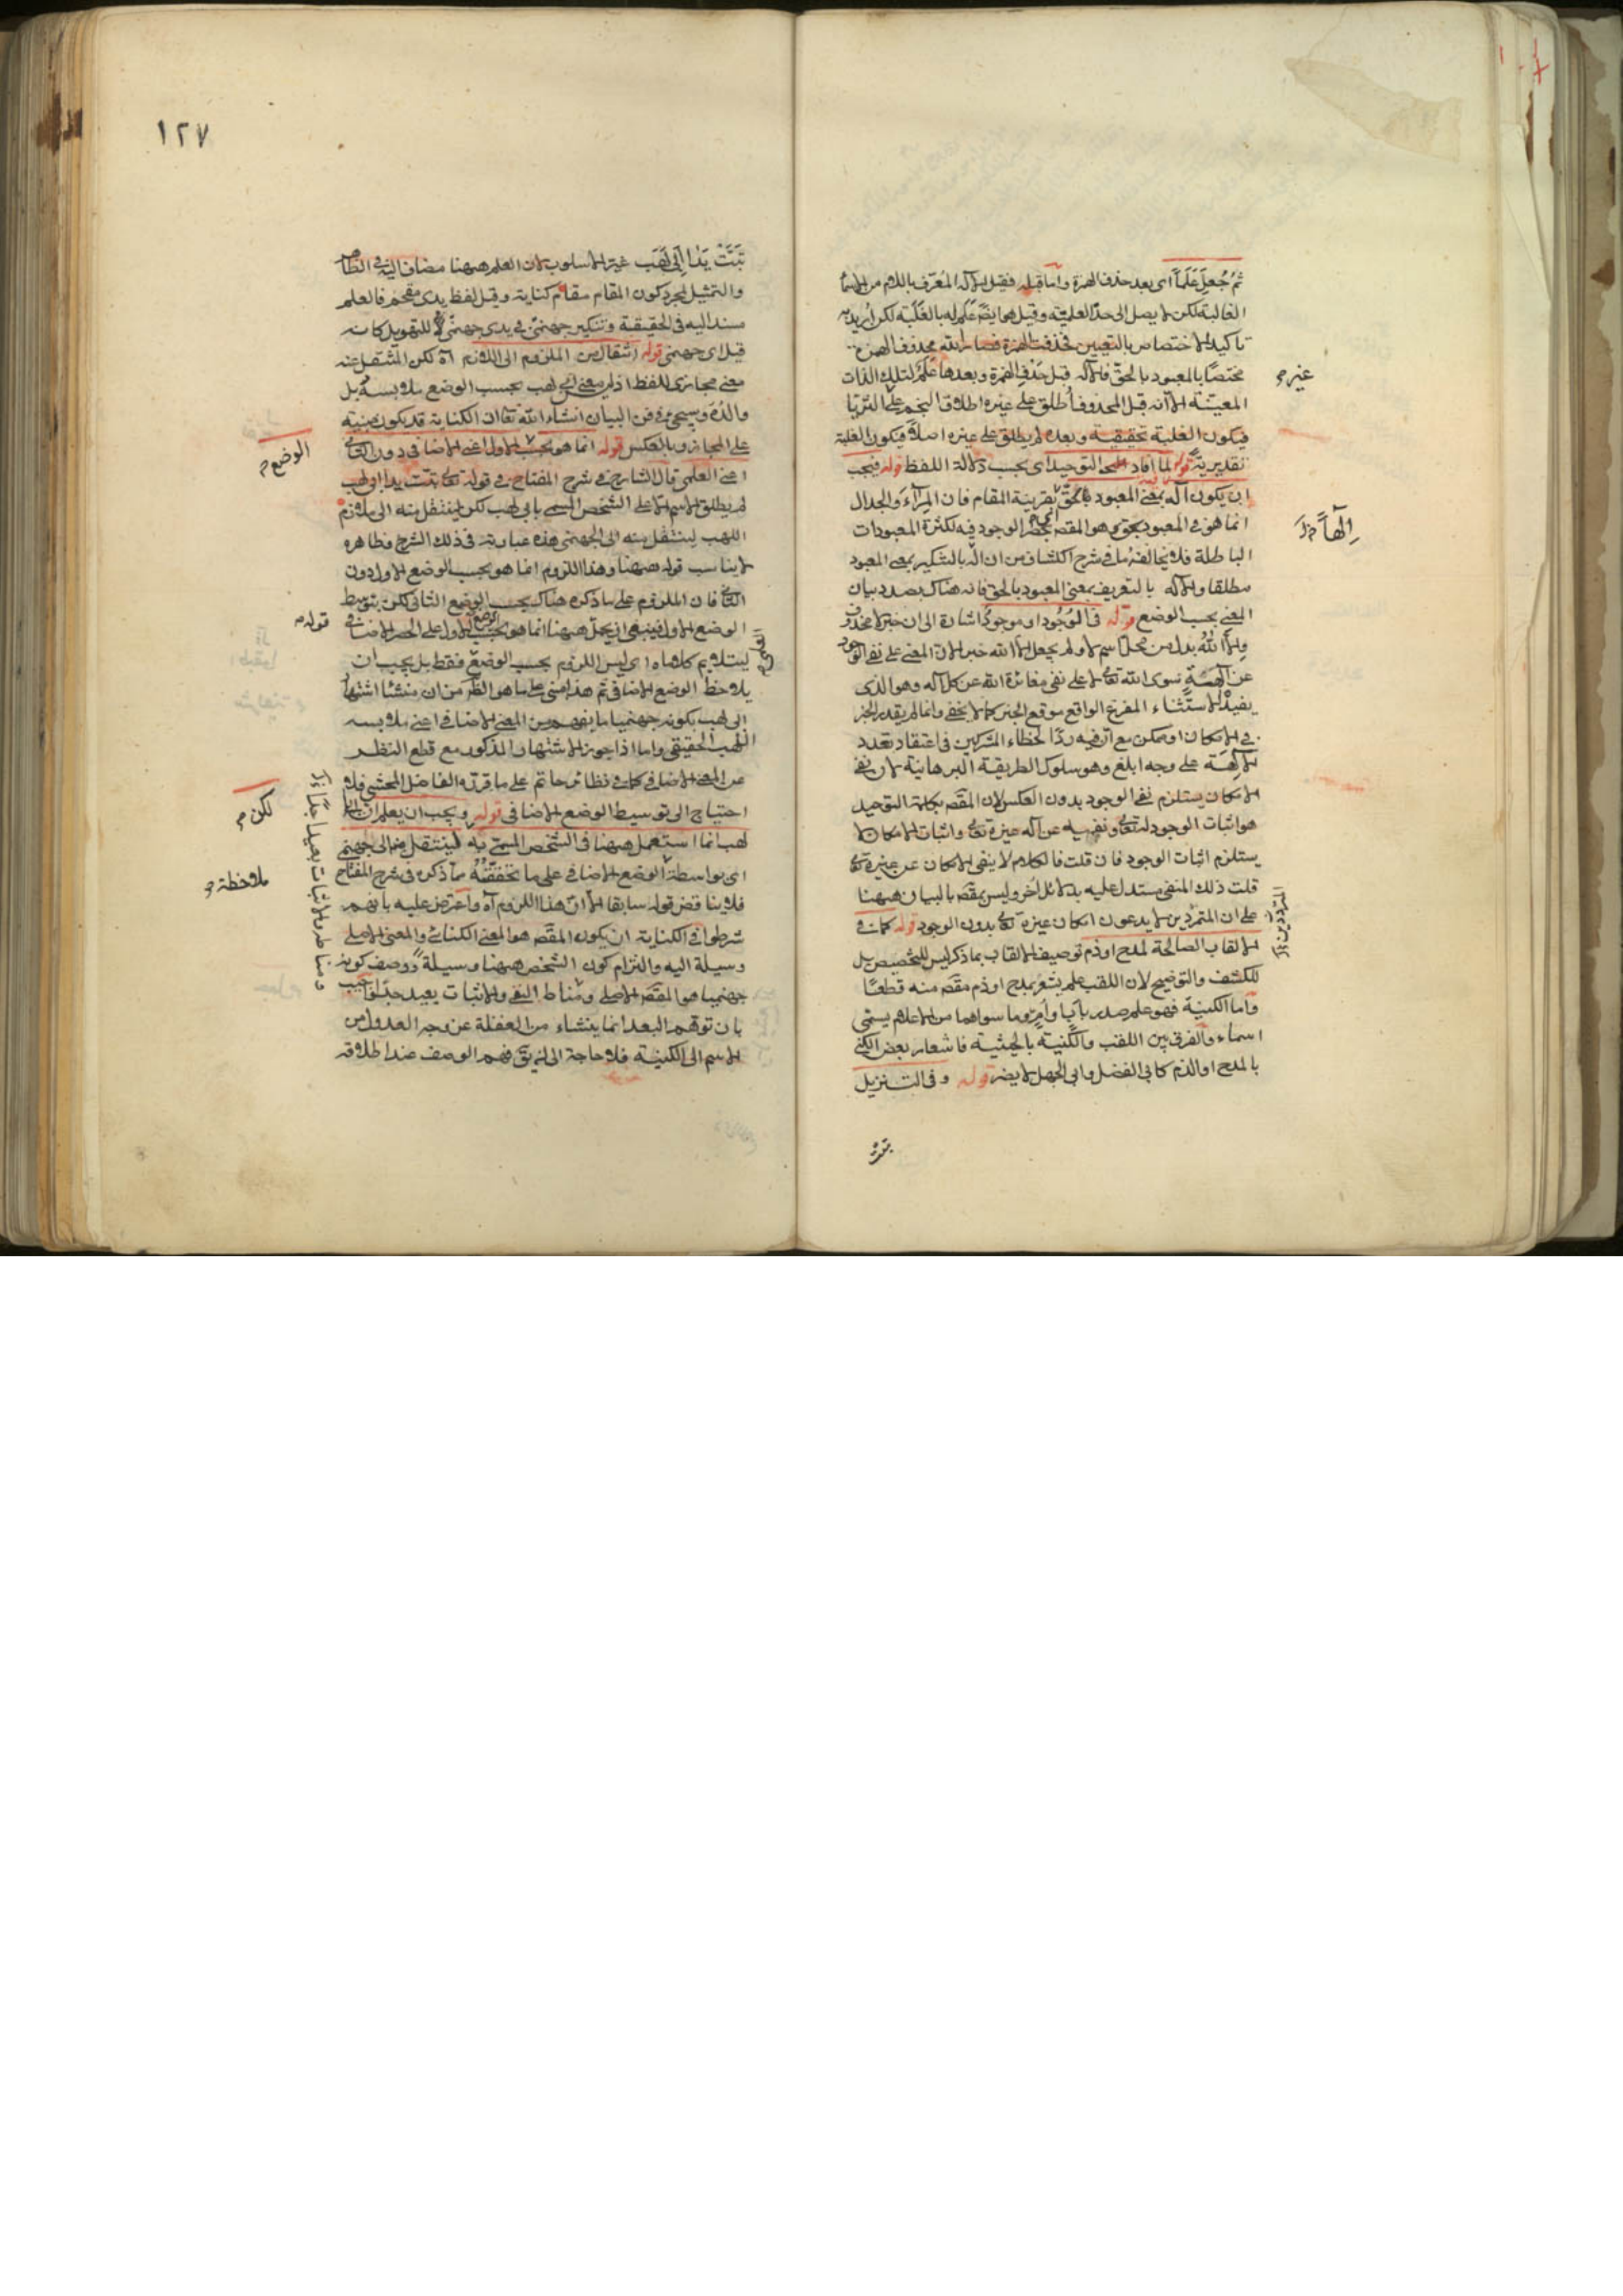 ثُمَّ جُعِلَ عَلَماً اى بعد حذف الهمزة واما قبله فقيل الاله المُعَرّف باللام من الاسماء
الغالبة لكن لا يصل الى حدّ العلمية وقيل هو ايضًا عَلَم له بالغَلَبَة لكن اريد به
تاكيد الاختصاص بالتعيين فحذفت الهمزة فصار الله محذوف الهمزة
مختصًا بالمعبود بالحقّ فالاله قبل حَذفِ الهمزة وبعدها عَلَمٌ لتلك الذات
المعيّنة الا انه قبل الحذف اُطلق على غيره اطلاق النجم على الثريا
فيكون الغلبة تحقيقية وبعده لم يطلق على غيره اصلاً فيكون الغلبة
تقديرية قوله لما افاد التوحيد اى بحسب دلالة اللفظ قوله فيجب
ان يكون اله بمعنى المعبود بالحقّ بقرينة المقام فان المِرَآءَ والجدال
انما هو فى المعبود بحق وهو المقصـ بحصر الوجود فيه لكثرة المعبودات
الباطلة فلا يخالفه ما فى شرح الكشاف من ان الٓه بالتنكير بمعنى المعبود
مطلقا والاله بالتعريف بمعنى المعبود بالحق فانه هناك بصدد بيان
المعنى بحسب الوضع قوله فى الوُجُود او موجودٌ اشارة الى ان خبر لا محذوف
والا اللّٰهُ بدل من محل اسم لا ولم يجعل الا الله خبر الان المعنى على نفى الوجود
عن آلهَةٍ سوى الله تعالى لا على نفى مغائرة الله عن كل اله وهو الذى
يفيدُ الاستثناء المفرغ الواقع موقع الخبر كما لا يخفى وانما لم يقدر الخبر
فى الامكان او ممكن مع انّ فيه ردًا لخطاء المشركين فى اعتقاد تعدد
الآلِهَة على وجه ابلغ وهو سلوك الطريقة البرهانية لان نفى
الامكان يستلزم نفى الوجود بدون العكس لان المقصـ بكلمة التوحيد
هو اثبات الوجود له تعالى ونفيه عن اله غيره تعالى واثبات الامكان لا
يستلزم اثبات الوجود فان قلت فالكلام لا ينفى الامكان عن غيره تعالى
قلت ذلك المنفى مستدل عليه بدلائل اُخر وليس بمقصـ بالبيان ههنا
على ان المتمرّدين لا يدعون امكان غيره تعالى بدون الوجود قوله كما فى
الالقاب الصالحة لمدح او ذم توصيف الالقاب بما ذكر ليس للتخصيص بل
للكشف والتوضيح لان اللقب علم يشعر بمدح او ذم مقصـ منه قطعًا
واما الكنية فهو علم صدر باَبٍ او اُمّ وما سواهما من الاعلام يسمى
اسماء والفرق بين اللقب والكُنية بالحيثية فاشعار بعض الكنى
بالمدح او الذم كابى الفضل وابى الجهل لا يضر قوله وفى التنزيل
تبت
غيره
اِلٓهاً
١٢٧
تَبَّتْ يَدَا اَبِى لَهَب غيّر الاسلوب لان العلم ههنا مضاف اليه فى الظاهر
والتمثيل لمجرد كون المقام مقام كناية وقيل لفظ يدى مقحم فالعلم
مسند اليه فى الحقيقة وتنكير جهنمىّ فى يدى جهنمىّ للتهويل كانه
قيل اى جهنمى قوله انتقال من الملزوم الى اللازم اه لكن المنتقل عنه
معنى مجازى للفظ اذ ليس معنى ابى لهب بحسب الوضع ملابسه بل
والدُه وسيجىء فى فن البيان انشاء الله تعالى ان الكناية قد يكون مبنية
على المجاز وبالعكس قوله انما هو بحسب الاول اعنى الاضافى دون الثانى
اعنى العلمى قال الشارح فى شرح المفتاح فى قوله تعالى تبت يدا ابى لهب
لم يطلق الاسم الا على الشخص المسمى بابى لهب لكن لينتقل منه الى ملازم
اللهب لينتقل منه الى الجهنمى هذه عبارته فى ذلك الشرح فظاهره
لا يناسب قوله ههنا وهذا اللزوم انما هو بحسب الوضع الاول دون
الثانى فان الملزوم على ما ذكره هناك بحسب الوضع الثانى لكن بتوسط
الوضع الاول فينبغى ان يحمل ههنا انما هو بحسب الاول على الحصر الاضافى
ليتلايم كلاماه اى ليس اللزوم بحسب الوضع فقط بل يجب ان
يلاحظ الوضع الاضافى ثم هذا مبنى على ما هو الظّ من ان منشأ اشتهار
ابى لهب بكونه جهنميا ما يفهم من المعنى الاضافى اعنى ملابسه
اللهب الحقيقى واما اذا جوز الاشتهار المذكور مع قطع النظر
عن المعنى الاضافى كما فى نظائر حاتم على ما قرره الفاضل المحشى فلا
احتياج الى توسيط الوضع الاضافى قوله ويجب ان يعلم ان ابا
لهب انما استعمل ههنا فى الشخص المسمى به لينتقل منه الى جهنمى
اى بواسطة الوضع الاضافى على ما تحققته مما ذكره فى شرح المفتاح
فلا يناقض قوله سابقا الا انّ هذا اللزوم اه واعترض عليه بانهم
شرطوا فى الكناية ان يكون المقصـ هو المعنى الكنائى والمعنى الاصلى
وسيلة اليه والتزام كون الشخص ههنا وسيلة ووصف كونه
جهنميا هو المقصـ الاصلى ومناط النفى والاثبات بعيد جدًا واجيب
بان توهم البعد انما ينشاء من الغفلة عن وجه العدول من
الاسم الى الكنية فلا حاجة الى ان يقـ فهم الوصف عند اطلاقه
الوضع
قوله
لكن
ملاحظة
ومناط والاثبات بعيدا جدًا